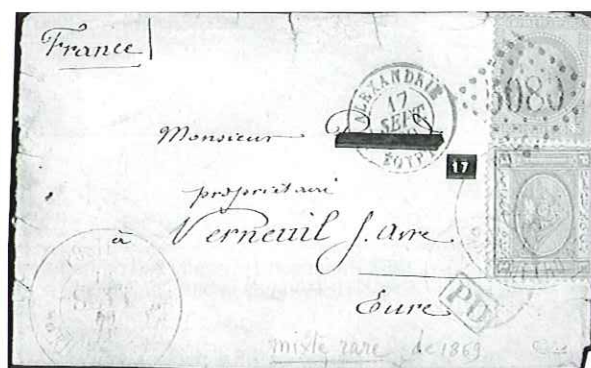 France
ALEXANDRIE
17
SEPT
EGYPTE
5080
Monsieur
17
propriétaire
à Verneuil s. Avre
Eure
PD
mixte rare de 1869